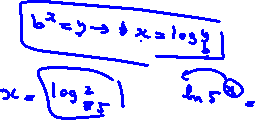 b^x = y → x = log_b y
x = log_5 2
ln 5^x =